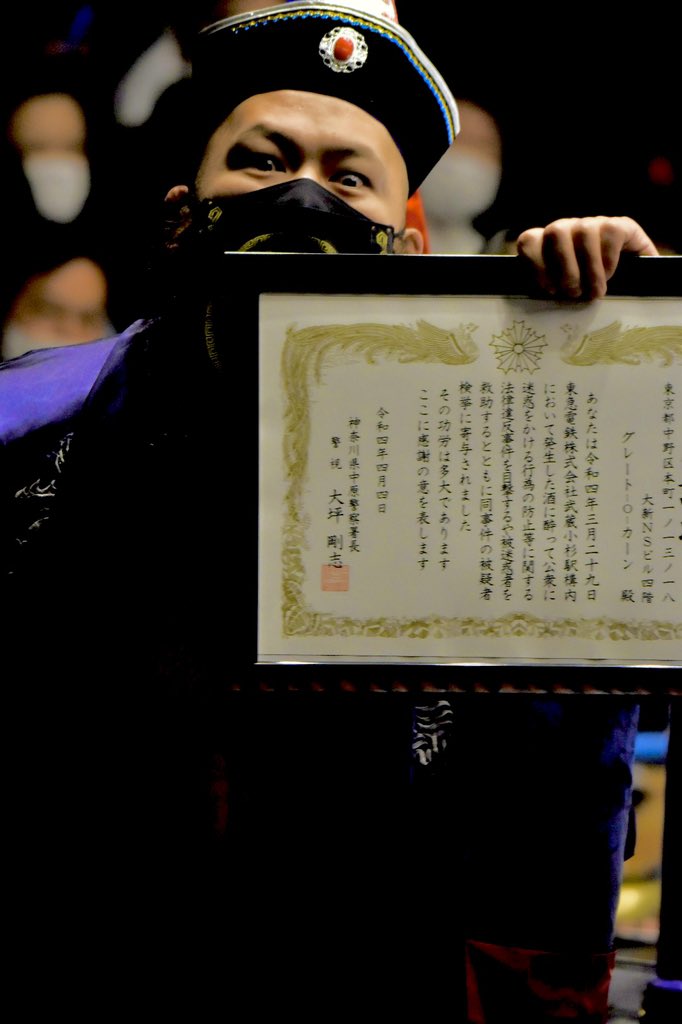 東京都中野区本町一ノ一三ノ一八
大新NSビル四階
グレート-O-カーン　殿
あなたは令和四年三月二十九日
東急電鉄株式会社武蔵小杉駅構内
において発生した酒に酔って公衆に
迷惑をかける行為の防止等に関する
法律違反事件を目撃するや被迷惑者を
救助するとともに同事件の被疑者
検挙に寄与されました
その功労は多大であります
ここに感謝の意を表します
令和四年四月四日
神奈川県中原警察署長
警視　大坪　剛志